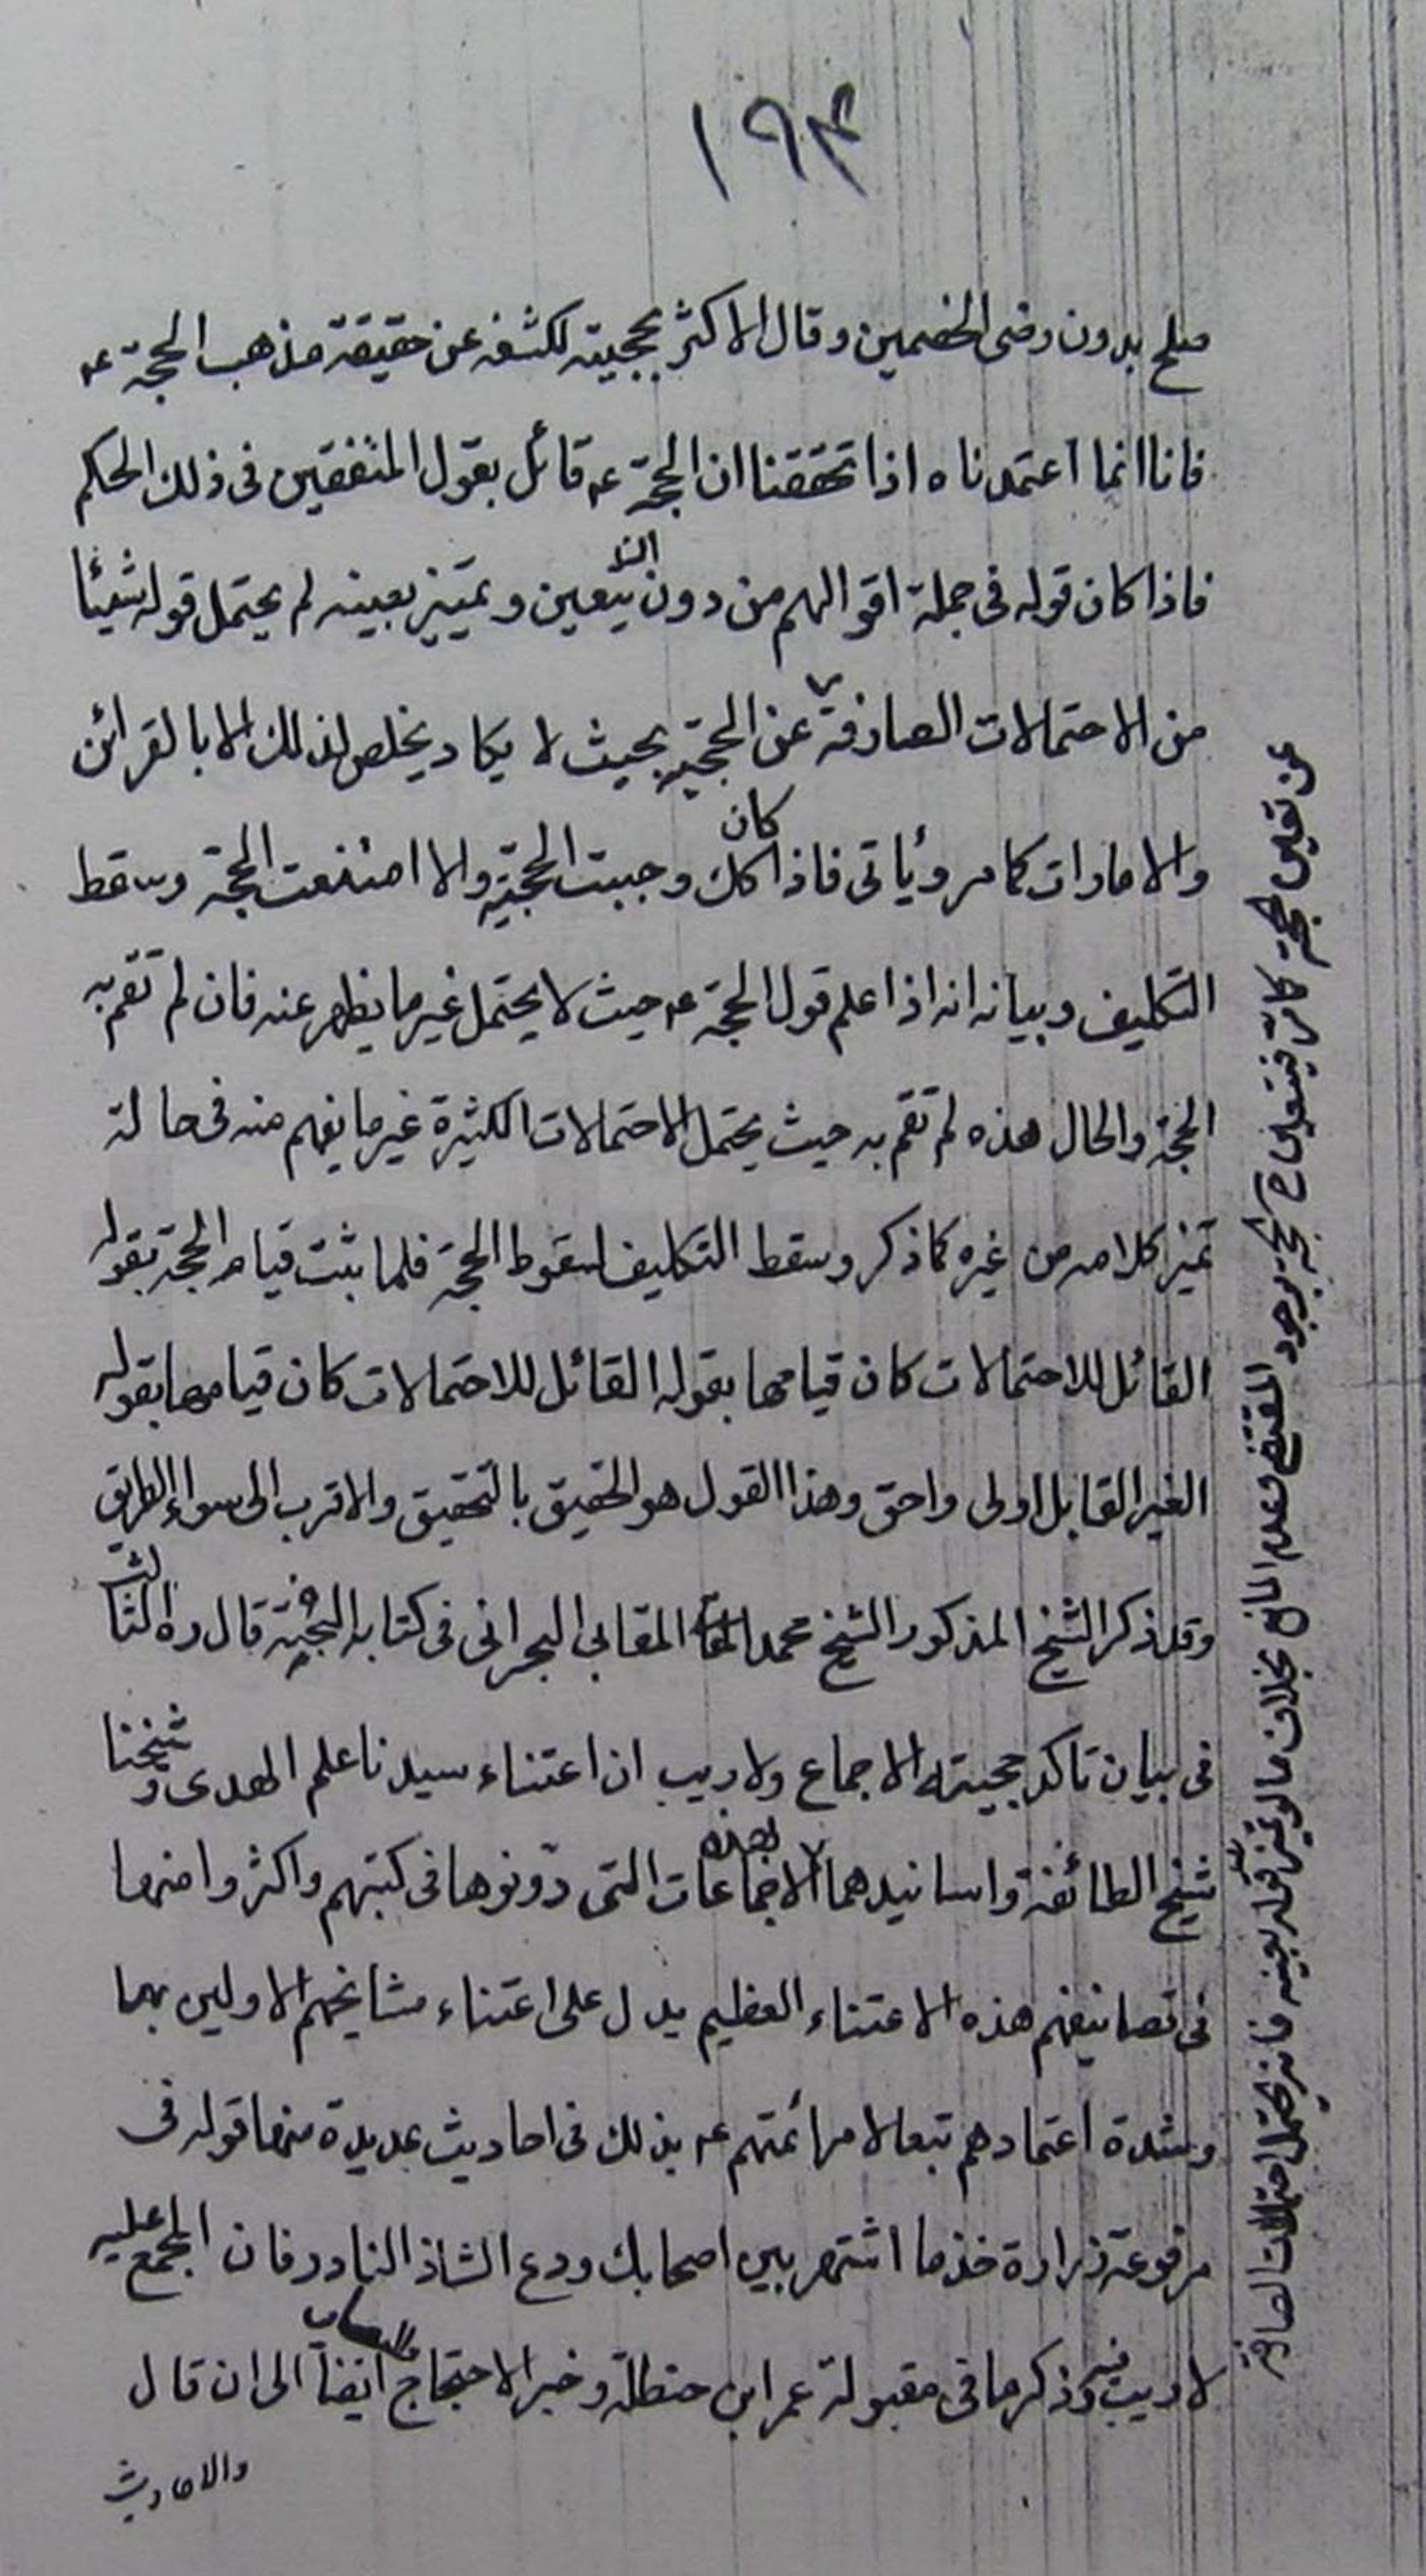 ١٩٣
صلح بدون رضى الخصمين وقال الاكثر بحجيته لكشفه عن حقيقة مذهب الحجة ع
فانا انما اعتمدناه اذا تحققنا ان الحجة ع قائل بقول المتفقين فى ذلك الحكم
فاذا كان قوله فى جملة اقوالهم من دون تعين وتميز بعينه لم يحتمل قوله شيئا
من الاحتمالات الصارفة عن الحجية بحيث لا يكاد يخلص لذلك الا بالقرائن
والامارات كما مر ويأتى فاذا كان كك وجبت الحجية والا امتنعت الحجة وسقط
التكليف وبيانه انه اذا علم قول الحجة ع حيث لا يحتمل غير ما يظهر عنه فان لم تقم به
الحجة والحال هذه لم تقم به حيث يحتمل الاحتمالات الكثيرة غير ما يفهم منه فى حالة
تميز كلامه من غيره كما ذكر وسقط التكليف لسقوط الحجة فلما يثبت قيام الحجة بقوله
القائل للاحتمالات كان قيامها بقوله القائل للاحتمالات كان قيامها بقوله
الغير القابل اولى واحق وهذا القول هو الحقيق بالتحقيق والاقرب الى سواء الطريق
وقد ذكر الشيخ المذكور الشيخ محمد المقابى البحرانى فى كتابه قال ره الثالث
فى بيان تاكد حجيته الاجماع ولا ريب ان اعتناء سيدنا علم الهدى وشيخنا
شيخ الطائفة واسانيدهما بهذه الاجماعات التى دونوها فى كتبهم واكثروا منها
فى تصانيفهم هذه الاعتناء العظيم يدل على اعتناء مشايخهم الاولين بها
وشدة اعتمادهم تبعا لامر ائمتهم ع بذلك فى احاديث عديدة منها قوله فى
مرفوعة زرارة خذ ما اشتهر بين اصحابك ودع الشاذ النادر فان المجمع عليه
لا ريب فيه وذكر ما فى مقبولة عمر ابن حنظلة وخبر الاحتجاج ايضا الى ان قال
والاحاديث
عن تعين الحجة كان فيتعين ح الحجة بوجود المقتضى وعدم المانع بخلاف ما لو تميز قوله بعينه فانه يحتمل احتمالات الصارفة